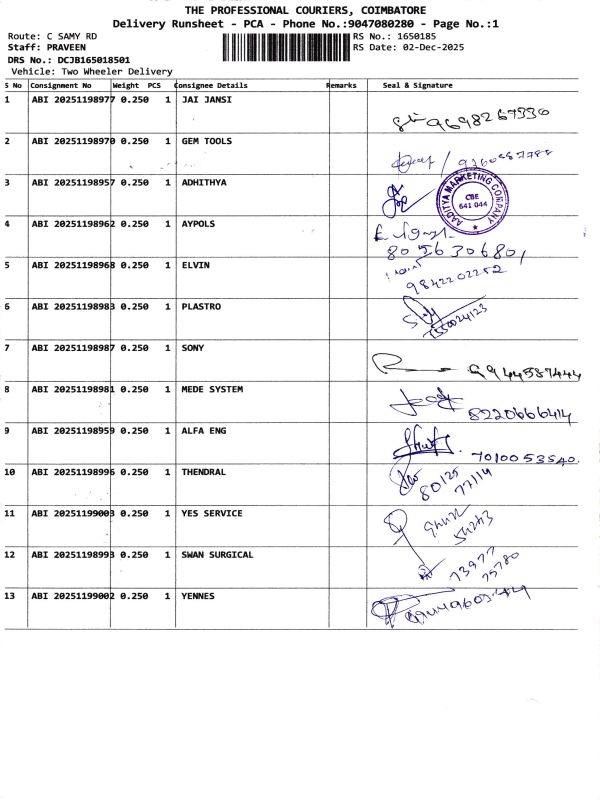 THE PROFESSIONAL COURIERS, COIMBATORE
Delivery Runsheet - PCA - Phone No.:9047080280 - Page No.:1
Route: C SAMY RD
RS No.: 1650185
Staff: PRAVEEN
RS Date: 02-Dec-2025
DRS No.: DCJB165018501
Vehicle: Two Wheeler Delivery
S No Consignment No Weight PCS Consignee Details Remarks Seal & Signature
1 ABI 20251198977 0.250 1 JAI JANSI
9698267330
2 ABI 20251198970 0.250 1 GEM TOOLS
3 ABI 20251198957 0.250 1 ADHITHYA
AADITYA MARKETING COMPANY
CBE
641 044
4 ABI 20251198962 0.250 1 AYPOLS
8056306801
5 ABI 20251198968 0.250 1 ELVIN
9842202252
6 ABI 20251198983 0.250 1 PLASTRO
7550024123
7 ABI 20251198987 0.250 1 SONY
9944587444
8 ABI 20251198981 0.250 1 MEDE SYSTEM
8220666414
9 ABI 20251198959 0.250 1 ALFA ENG
7010053540
10 ABI 20251198996 0.250 1 THENDRAL
80125
77114
11 ABI 20251199003 0.250 1 YES SERVICE
54243
12 ABI 20251198993 0.250 1 SWAN SURGICAL
73977
75780
13 ABI 20251199002 0.250 1 YENNES